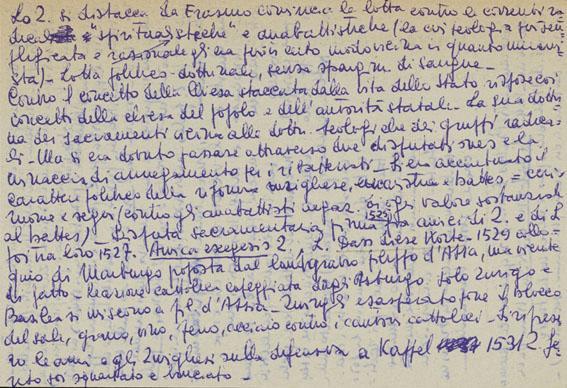 Lo Z. si distacca da Erasmo comincia la lotta contro le correnti ra
dicali "spiritualistiche" e anabattistiche (la cui teologia pur sem
plificata e razionale gli era per in quanto umani
sta) - Lotta politico-dottrinale, senza spargim. di sangue -
Contro il concetto della Chiesa staccata dalla vita dello Stato rispose coi
concetti della chiesa del popolo e dell'autorità statale. La sua dottri
na dei sacramenti vicina alle dottr. teologiche dei gruppi radica
li - Ma si era dovuto passare attraverso due disputationes e la
minaccia di annegamento per i ribattezzati - Si era accentuato il
carattere politico della riforma zurighese, eucaristia e battes = comu
nione e segni (contro gli anabattisti negar. ogni valore sostanziale
al battes) - Disputa sacramentaria prima 1525 fra amici di Z. e di L
poi tra loro 1527. Amica exegesis Z, L. Dass diese Worte - 1529 collo
quio di Marburgo proposta dal langravio Filippo d'Assia, ma niente
di fatto - Reazione cattolica capeggiata dagli Asburgo. Solo Zurigo e
Basilea si uniscono a Fil. d'Assia - Zwingli esasperato pone il blocco
del sale, grano, vino, ferro, acciaio contro i cantoni cattolici - Si ripres
ro le armi e gli Zurighesi sulla difensiva a Kappel 1531 Z fe
rito poi squartato e bruciato -